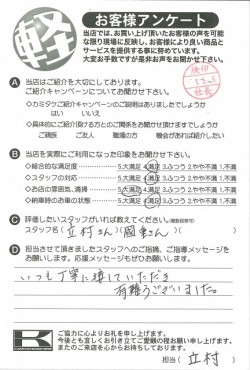 軽
お客様アンケート
当店では、お買い上げ頂いたお客様の声を可能
な限り現場に反映し、お客様により良い商品と
サービスを提供する事に努めています。
大変お手数ですが是非お声をお聞かせ下さい。
A 当店はご紹介を大切にしております。
ご紹介キャンペーンについてお聞かせ下さい。
◇カミタケご紹介キャンペーンのご説明はありましたでしょうか
はい いいえ
◇具体的にご紹介頂ける方とのご関係をお聞かせ頂けますでしょうか
ご親族 ご友人 職場の方 機会があれば紹介したい
B 当店を実際にご利用になった印象をお聞かせ下さい。
◇総合的な満足度 5.大満足 4.満足 3.ふつう 2.やや不満 1.不満
◇スタッフの対応 5.大満足 4.満足 3.ふつう 2.やや不満 1.不満
◇お店の雰囲気、清掃 5.大満足 4.満足 3.ふつう 2.やや不満 1.不満
◇納車時のお車の状態 5.大満足 4.満足 3.ふつう 2.やや不満 1.不満
C 評価したいスタッフがいれば教えてください。
スタッフ名(立村さん)(國東さん)
D 担当させて頂きましたスタッフへのご指摘、ご指導メッセージを
お願いします。応援メッセージもぜひお願いします。
いつも丁寧に接していただき
有難うございました。
K
ご協力に心よりお礼を申し上げます。
今後とも宜しくお引き立てご愛顧の程お願い申し上げます。
またのご来店を心からお待ちしております。
担当(立村)